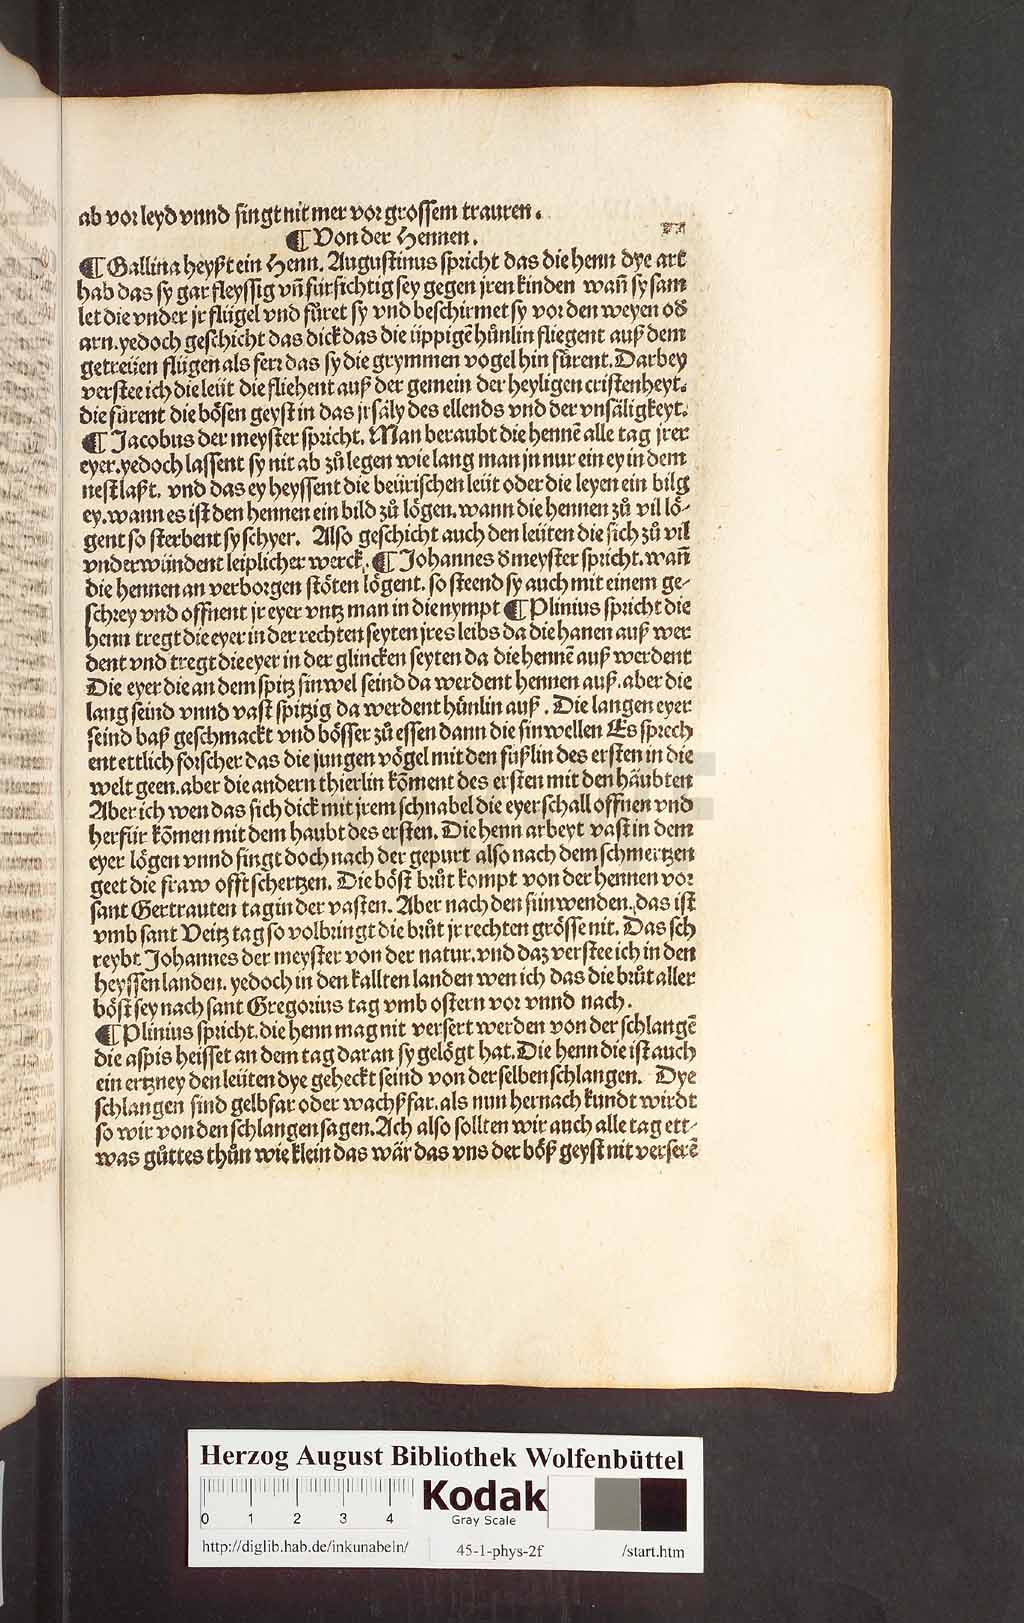 ab vor leyd vnnd singt nit mer vor grossem trauren.
¶ Von der Hennen.
¶ Gallina heyßt ein Henn. Augustinus spricht das die henn dye art
hab das sy gar fleyssig vñ fürsichtig sey gegen jren kinden wañ sy sam
let die vnder jr flügel vnd fůret sy vnd beschirmet sy vor den weyen od̕
arn. yedoch geschicht das dick das die üppigẽ hůnlin fliegent auß dem
getreüen flügen als ferr das sy die grymmen vogel hin fůrent. Darbey
verstee ich die leüt die fliehent auß der gemein der heyligen cristenheyt.
die fůrent die bösen geyst in das jrsäly des ellends vnd der vnsäligkeyt.
¶ Jacobus der meyster spricht. Man beraubt die hennẽ alle tag jrer
eyer. yedoch lassent sy nit ab zů legen wie lang man jn nur ein ey in dem
nest laßt. vnd das ey heyssent die beürischen leüt oder die leyen ein bilg
ey. wann es ist den hennen ein bild zů lögen. wann die hennen zů vil lö-
gent so sterbent sy schyer. Also geschicht auch den leüten die sich zů vil
vnderwündent leiplicher werck. ¶ Johannes d̕ meyster spricht. wañ
die hennen an verborgen stöten lögent. so steend sy auch mit einem ge-
schrey vnd offnent jr eyer vntz man in die nympt ¶ Plinius spricht die
henn tregt die eyer in der rechten seyten jres leibs da die hanen auß wer
dent vnd tregt die eyer in der glincken seyten da die hennẽ auß werdent
Die eyer die an dem spitz sinwel seind da werdent hennen auß. aber die
lang seind vnnd vast spitzig da werdent hůnlin auß. Die langen eyer
seind baß geschmackt vnd bösser zů essen dann die sinwellen Es sprech
ent ettlich forscher das die jungen vögel mit den füßlin des ersten in die
welt geen. aber die andern thierlin kõment des ersten mit den häubten
Aber ich wen das sich dick mit jrem schnabel die eyer schall offnen vnd
herfür kõmen mit dem haubt des ersten. Die henn arbeyt vast in dem
eyer lögen vnnd singt doch nach der gepurt also nach dem schmertzen
geet die fraw offt schertzen. Die böst brůt kompt von der hennen vor
sant Gertrauten tag in der vasten. Aber nach den sunwenden, das ist
vmb sant Veitz tag so volbringt die brůt jr rechten grösse nit. Das sch
reybt Johannes der meyster von der natur. vnd daz verstee ich in den
heyssen landen. yedoch in den kallten landen wen ich das die brůt aller
böst sey nach sant Gregorius tag vmb ostern vor vnnd nach.
¶ Plinius spricht. die henn mag nit versert werden von der schlangẽ
die aspis heisset an dem tag dar an sy gelögt hat. Die henn die ist auch
ein ertzney den leüten dye geheckt seind von der selben schlangen. Dye
schlangen sind gelbfar oder wachßfar. als nun hernach kundt wirdt
so wir von den schlangen sagen. Ach also sollten wir auch alle tag ett-
was gůttes thůn wie klein das wär das vns der böß geyst nit verserẽ
Herzog August Bibliothek Wolfenbüttel
0 1 2 3 4
Kodak
Gray Scale
http://diglib.hab.de/inkunabeln/ 45-1-phys-2f /start.htm